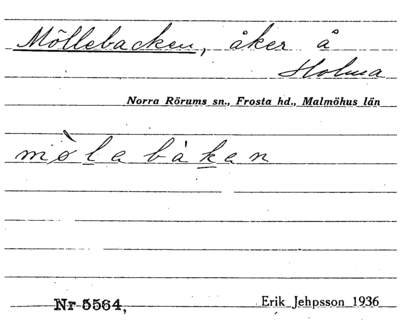 Möllebacken, åker å
Holma
Norra Rörums sn., Frosta hd., Malmöhus län
mò̀lebàken
Nr 5564,
Erik Jehpsson 1936